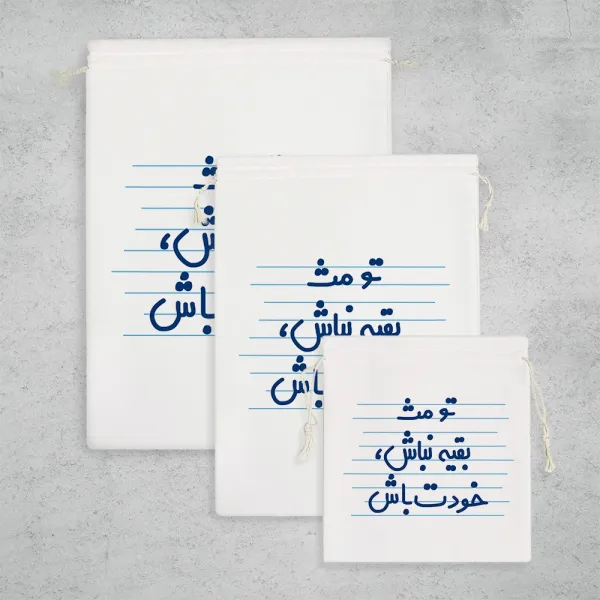 باش
تو مث
بقیه نباش،
باش
تو مث
بقیه نباش،
خودت باش